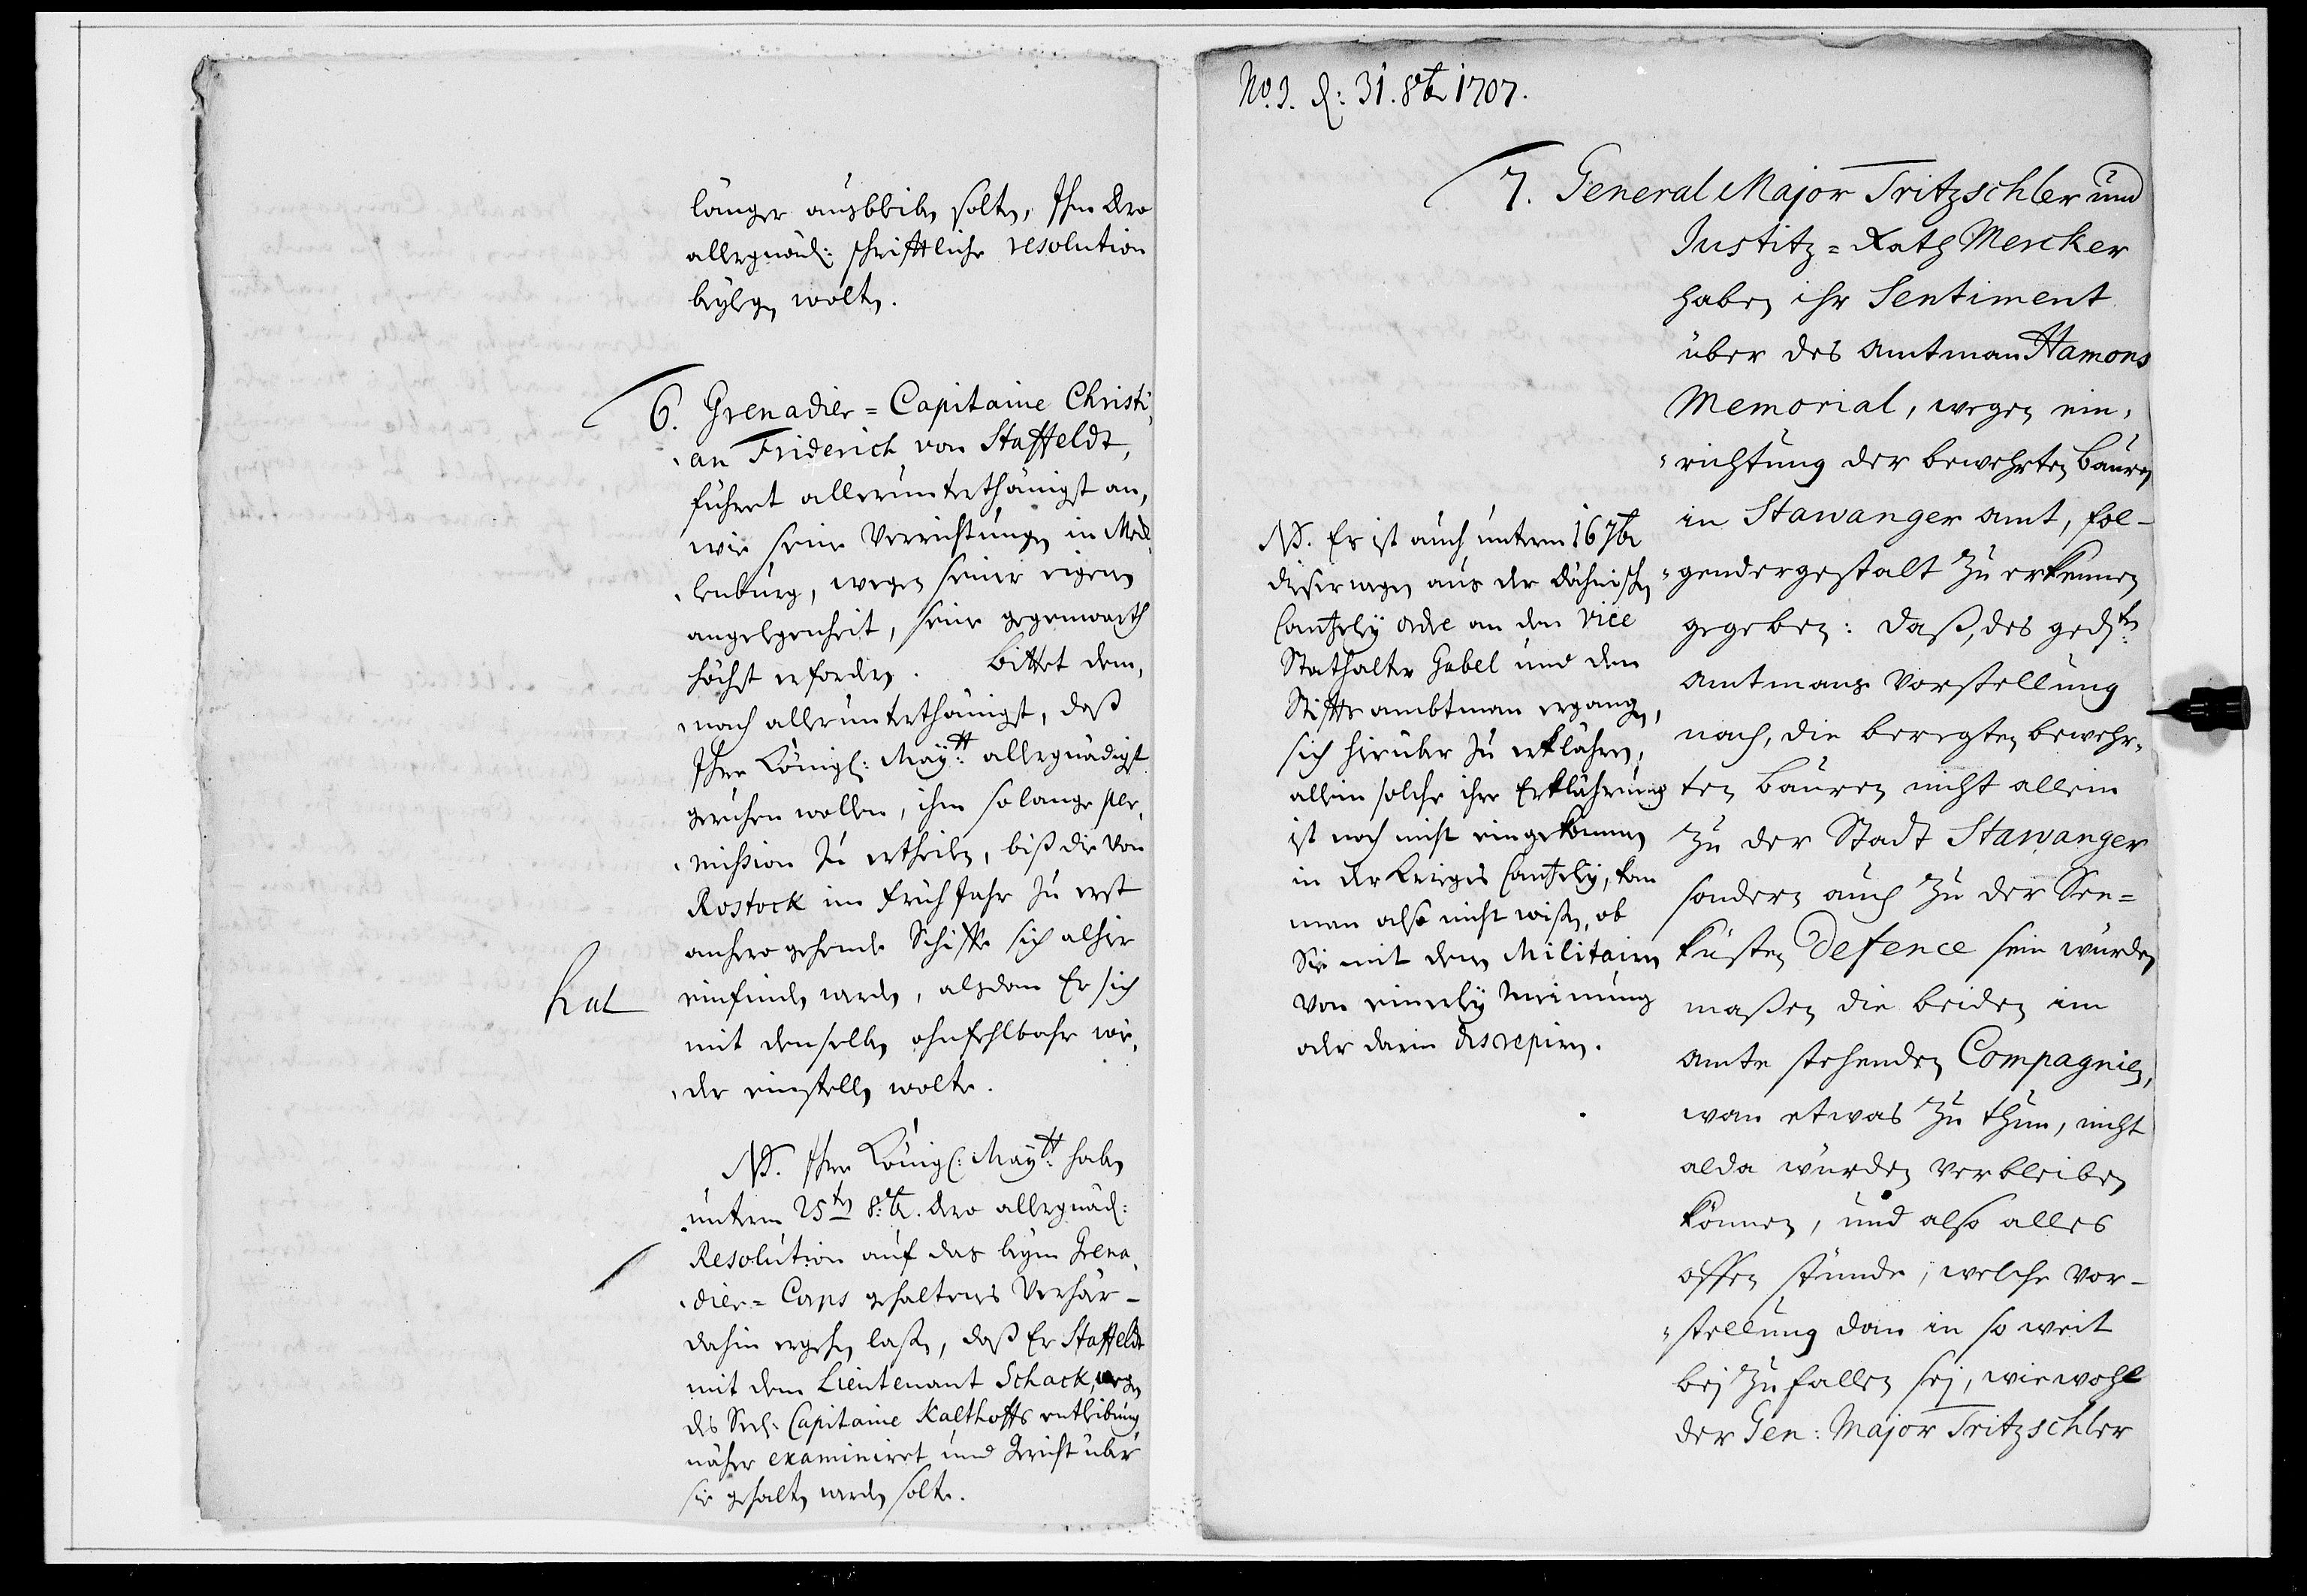 länger ausbleiben solte, Ihm dero
allergnäd: schrifftliche resolution
beylegen wolten.
6. Grenadier=Capitaine Christi,
,an Friderich von Staffeldt,
führet allerunterthänigst an,
wie seine Verrichtungen in Meck,
,lenburg, wegen seiner eigenen
angelegenheit, seine gegenwarth
höchst erfordern. Bittet dem,
,nach allerunterthänigst, daß
Ihre Königl: Maÿtt: allergnädigst
geruhen wollen, ihm so lange per,
,mission zu ertheilen, biß die von
Rostock im früh Jahr zu erst
anhero gehende Schiffe sich alhier
einfinden werden, alsdan Er sich
mit denselben ohnfehlbahr wie,
,der einstellen wolte.
hat
NB. Ihre Königl: Maÿtt: haben
unterm 25ten 8:br. dero allergnäd:
Resolution auf das beym Grena,
,dier=Corps gehaltenes Verhör-
dahin ergehen laßen, daß Er Staffeldt
mit dem Lieutenant Schack, wegen
des Seel: Capitaine Kalthoffs entleibung
näher examiniret und Gericht über
sie gehalten werden solte.
No. 3. d: 31. 8br 1707.
7. General Major Tritzschler und
Justitz=Rath Mercker
haben ihr Sentiment
über des Amtman Hamons
Memorial, wegen ein,
"richtung der bewehrten bauren
in Stawanger Amt, fol-
"gendergestalt zu erkennen
gegeben: daß, des gedten:
Amtmans Vorstellung
nach, die beregten bewehr,
ten bauren nicht allein
zu der Stadt Stawanger
sondern auch zu der See=
küsten Defence sein würden
maßen die beiden im
Amte stehenden Compagnien,
wan etwas zu thun, nicht
alda würden verbleiben
können, und also alles
offen stünde, welche vor-
"stellung dan in so weit
bej zu fallen sej, wie wohl
der Gen: Major Tritzschler
NB. Es ist auch unterm 16 7br
dieserwegen aus der Dähnischen
Cantzeley ordre an den Vice
Stathalter Gabel und den
Stiffts ambtman ergangen,
sich hierüber zu erklähren,
allein solche ihre Erklährung
ist noch nicht eingekommen
in der Krieges Cantzeley, kan
man also nicht wißen, ob
Sie mit denen Militairen
von einerley Meinung
oder darin discrepiren.